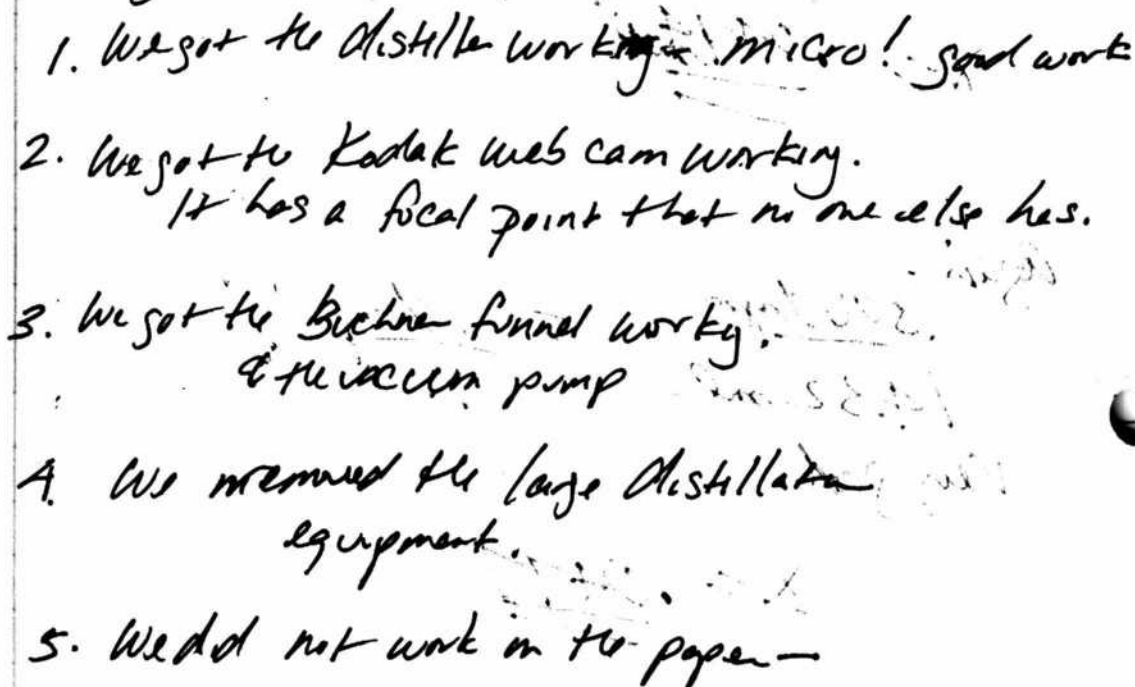 1. We got the distiller working - micro! good work
2. We got the Kodak web cam working.
It has a focal point that no one else has.
3. We got the Buchner funnel working.
& the vaccum pump
4. We the large distillation
equipment.
5. We did not work on the paper —